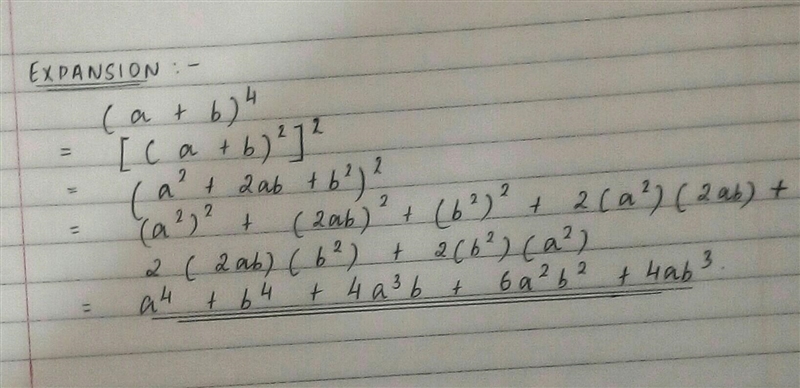 EXPANSION :-
(a + b)⁴
= [(a + b)²]²
= (a² + 2ab + b²)²
= (a²)² + (2ab)² + (b²)² + 2(a²)(2ab) +
2(2ab)(b²) + 2(b²)(a²)
= a⁴ + b⁴ + 4a³b + 6a²b² + 4ab³.